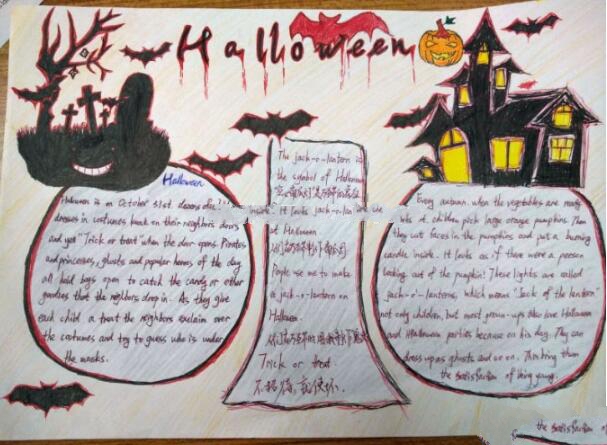 Halloween
Halloween
Halloween is on October 31st dozens of
dresses in costumes knock on their neighbors doors
and yell "Trick or treat" when the door opens. Pirates
and princesses, ghosts and popular heroes of the day
all hold bags open to catch the candy or other
goodies that the neighbors drop in. As they give
each child a treat the neighbors exclaim over
the costumes and try to guess who is under
the masks.
The jack-o-lantern is
the symbol of Halloween
inside". It looks jack-o-lan
at Halloween
People use me to make
a jack-o-lantern on
Halloween.
Trick or treat
不招待,就使坏.
Every autumn when the vegetables are ready
to eat children pick large orange pumpkins. Then
they cut faces in the pumpkins and put a burning
candle inside. It looks as if there were a person
looking out of the pumpkin! These lights are called
jack-o'-lanterns, which means "Jack of the lantern"
not only children, but most grown-ups also love Halloween
and Halloween parties because on his day. They can
dress up as ghosts and so on. This bring them
the satisfaction of being young.
the satisfaction